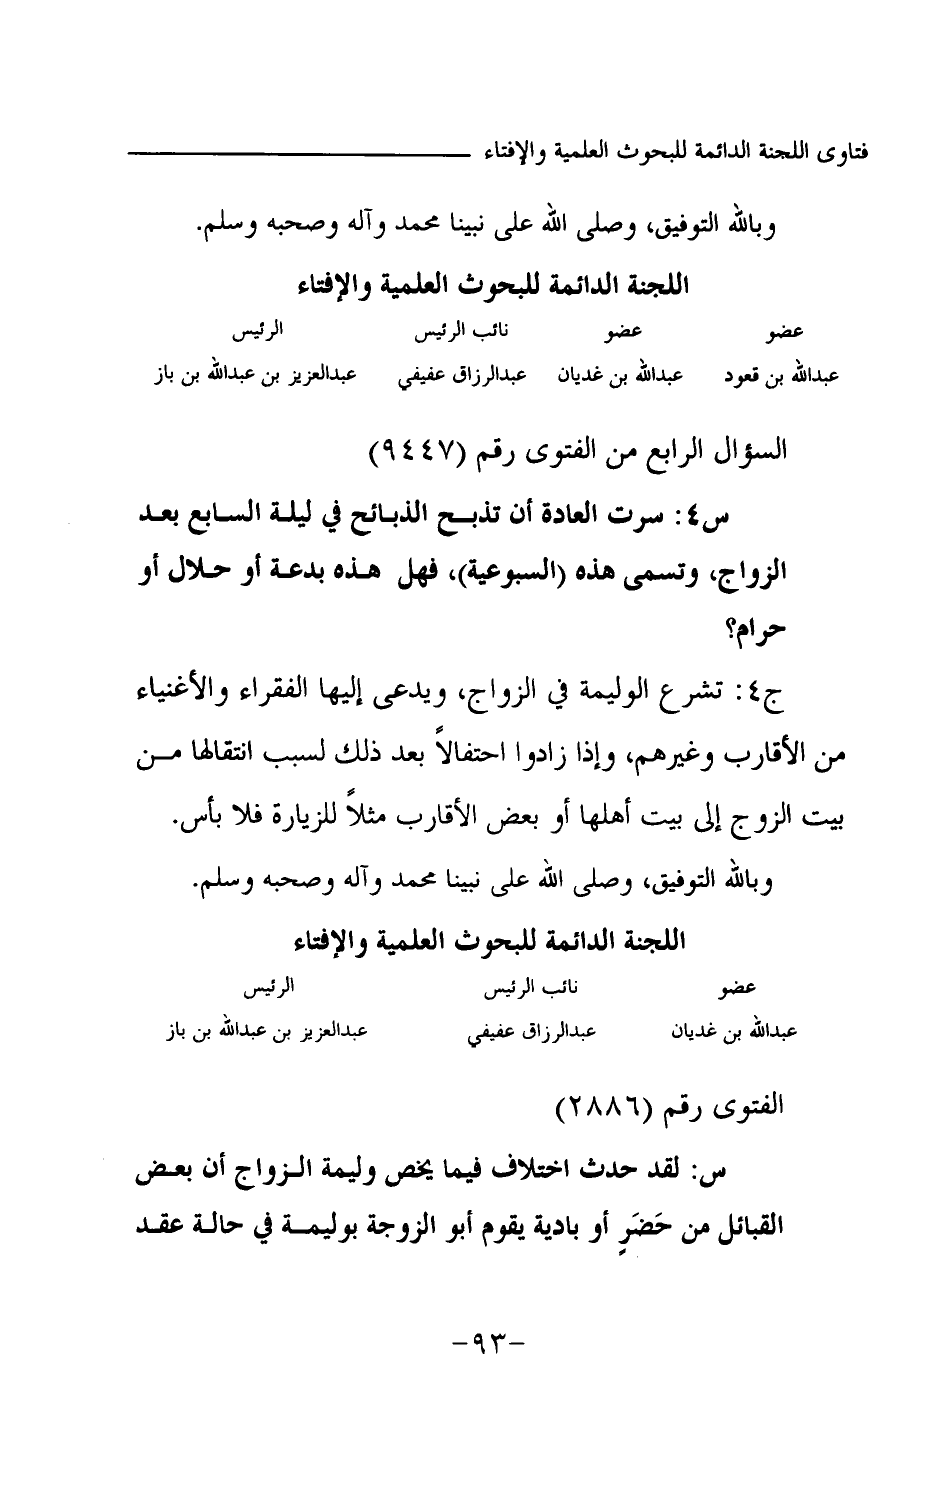 فتاوى اللجنة الدائمة للبحوث العلمية والإفتاء
وبالله التوفيق، وصلى الله على نبينا محمد وآله وصحبه وسلم.
اللجنة الدائمة للبحوث العلمية والإفتاء
عضو عضو نائب الرئيس الرئيس
عبدالله بن قعود عبدالله بن غديان عبدالرزاق عفيفي عبدالعزيز بن عبدالله بن باز
السؤال الرابع من الفتوى رقم (٩٤٤٧)
س٤: سرت العادة أن تذبح الذبائح في ليلة السابع بعد
الزواج، وتسمى هذه (السبوعية)، فهل هذه بدعة أو حلال أو
حرام؟
ج٤: تشرع الوليمة في الزواج، ويدعى إليها الفقراء والأغنياء
من الأقارب وغيرهم، وإذا زادوا احتفالاً بعد ذلك لسبب انتقالها من
بيت الزوج إلى بيت أهلها أو بعض الأقارب مثلاً للزيارة فلا بأس.
وبالله التوفيق، وصلى الله على نبينا محمد وآله وصحبه وسلم.
اللجنة الدائمة للبحوث العلمية والإفتاء
عضو نائب الرئيس الرئيس
عبدالله بن غديان عبدالرزاق عفيفي عبدالعزيز بن عبدالله بن باز
الفتوى رقم (٢٨٨٦)
س: لقد حدث اختلاف فيما يخص وليمة الزواج أن بعض
القبائل من حَضَرٍ أو بادية يقوم أبو الزوجة بوليمة في حالة عقد
-٩٣-